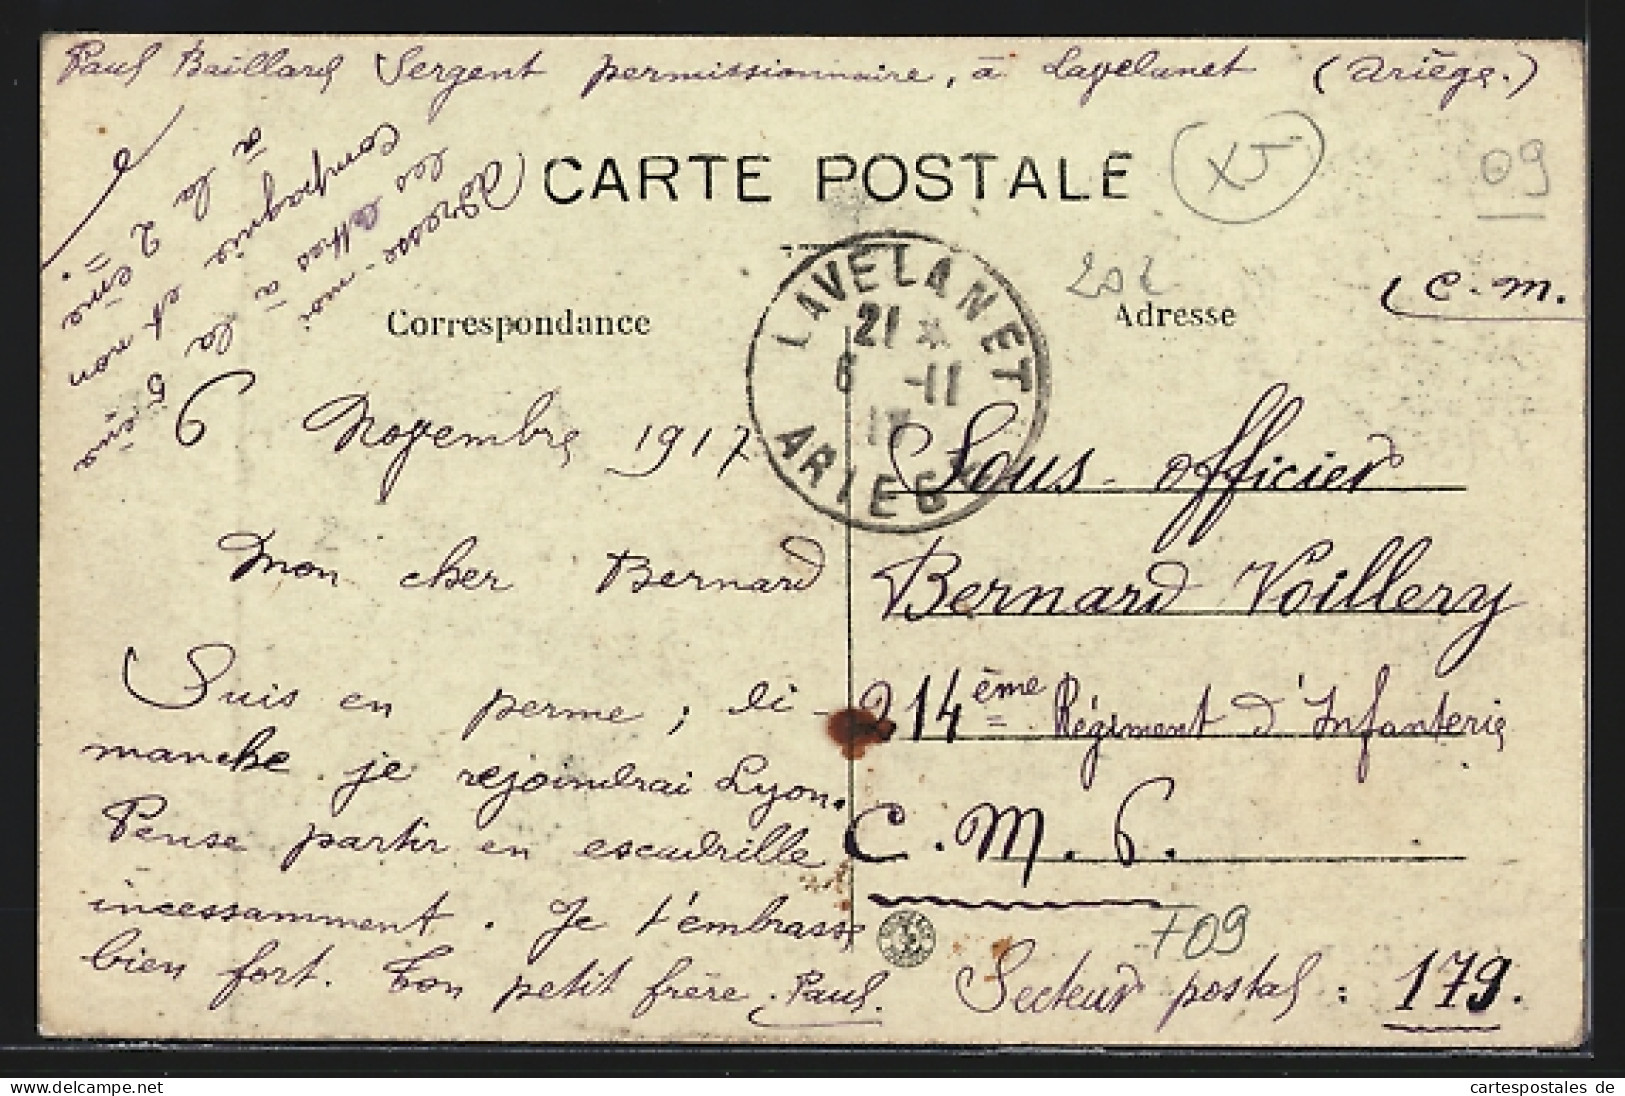 Paul Baillard Sergent permissionnaire, à Lavelanet (Ariège.)
Adresse-moi
les lettres à la 5 ème
compagnie et non
à la 2 ème.
CARTE POSTALE
XJ
09
202
C.M.
Correspondance
Adresse
LAVELANET
21 *
6 -11
17
ARIEGE
6 Novembre 1917
Mon cher Bernard
Suis en perme ; di-
manche je rejoindrai Lyon.
Pense partir en escadrille
incessamment. Je t'embrasse
bien fort. Ton petit frère. Paul.
Sous-officier
Bernard Voillery
214ème Régiment d'Infanterie
C.M.6.
T09
Secteur postal : 179.
cartespostales de